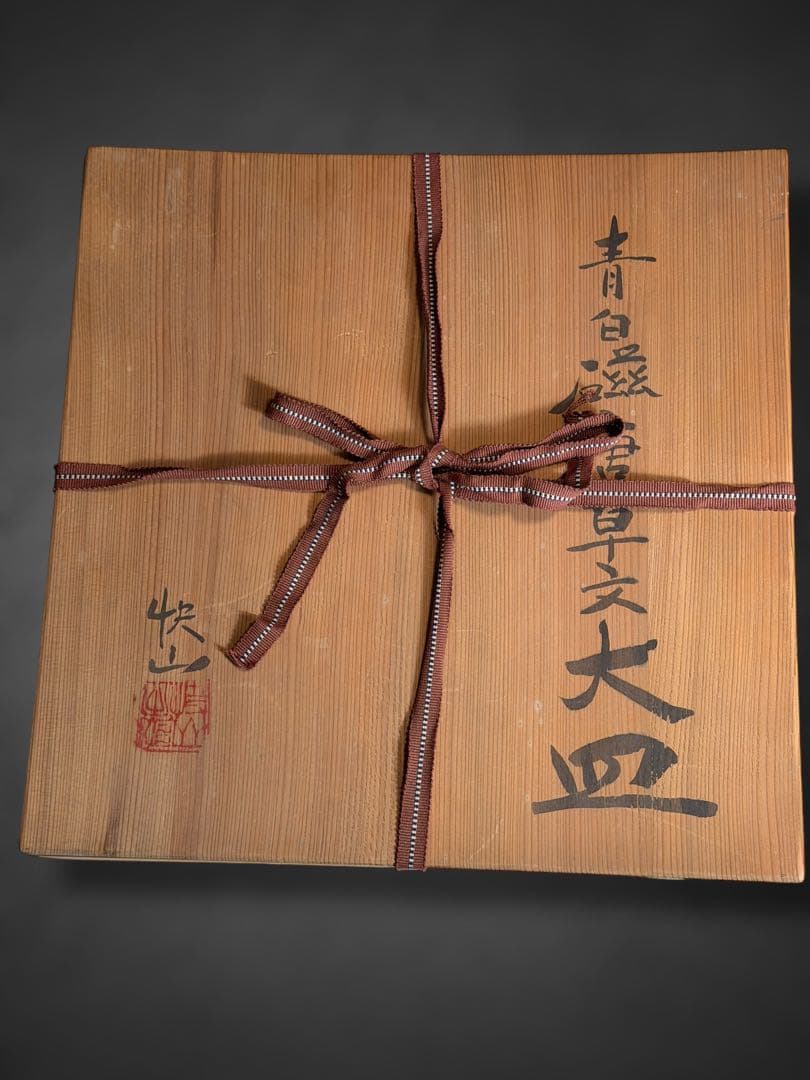 青白磁唐草文大皿
快山